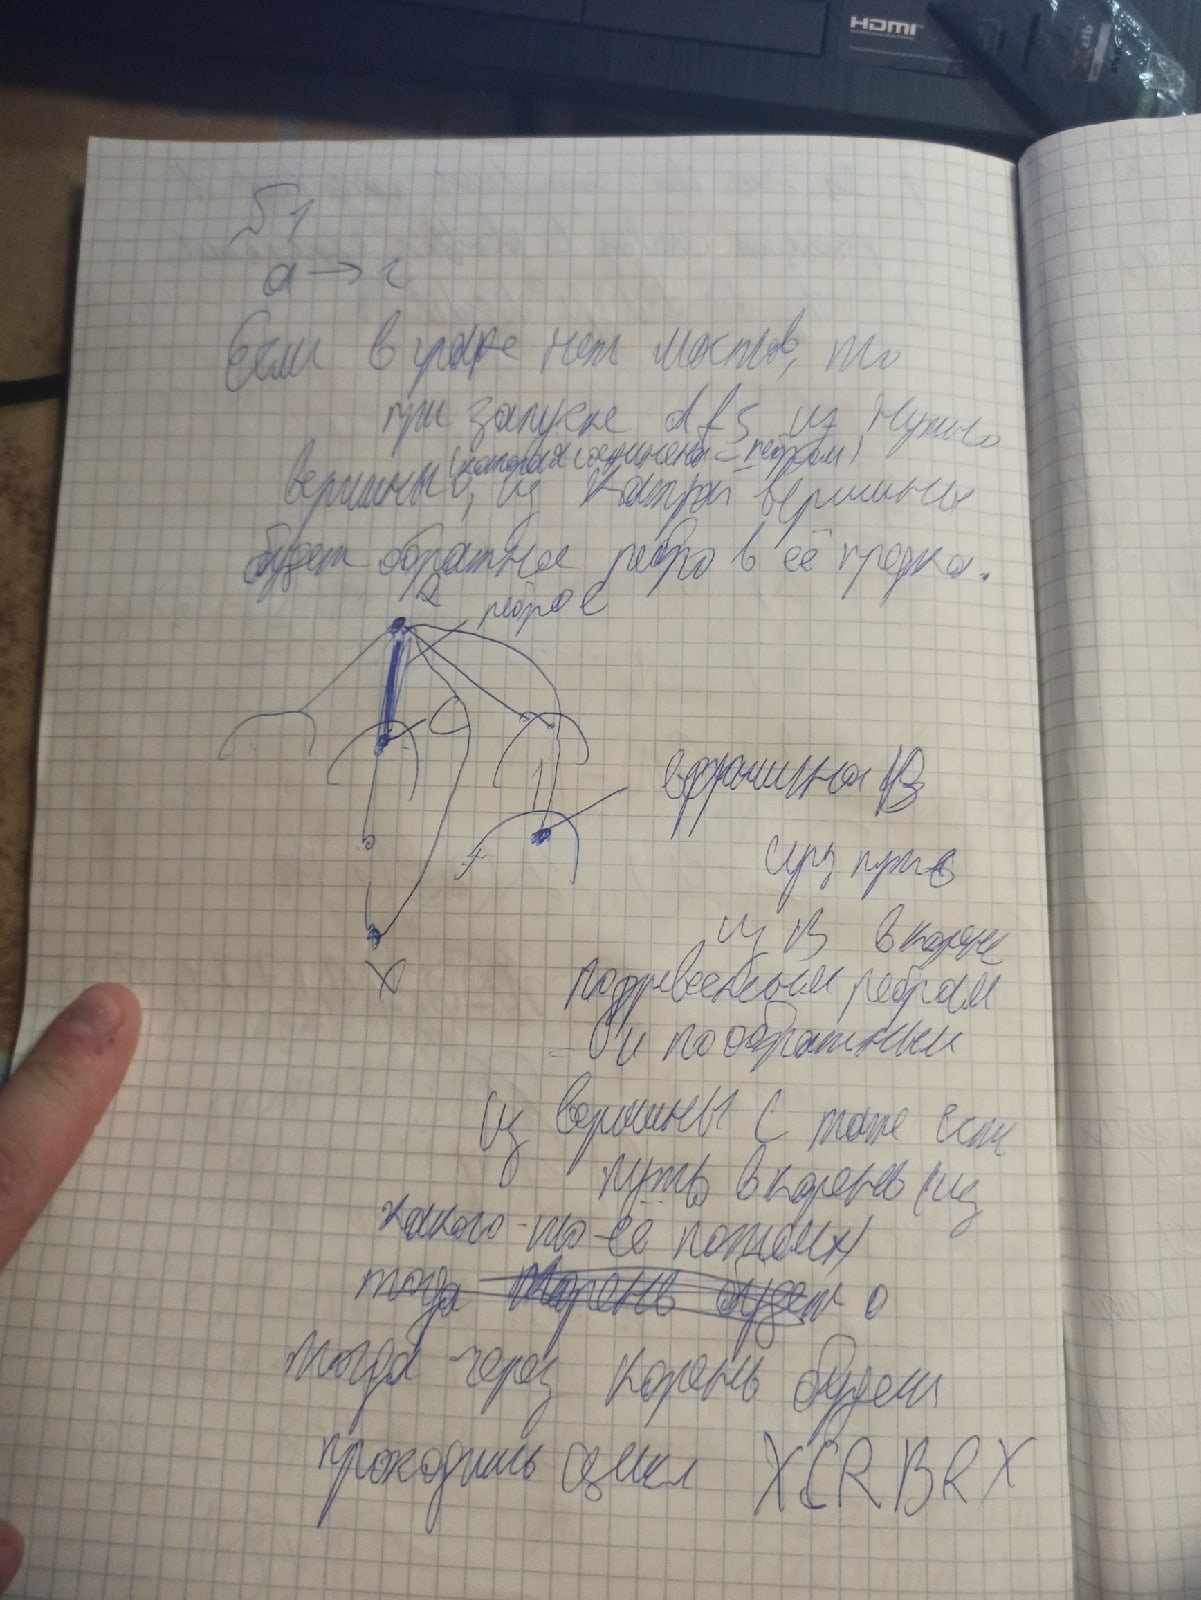 HDMI
№1
a → c
Если в графе нет мостов, то
при запуске dfs из нужной
вершины (которая соединена с ребром)
из которой вершины
будет обратное ребро в её предка.
R
ребро e
C
вершина B
сущ путь
из B в корень
по древесным рёбрам
и по обратным
X
из вершины C тоже есть
путь в корень (из
какого-то её потомка)
тогда
тогда через корень будет
проходить цикл XCRBRX